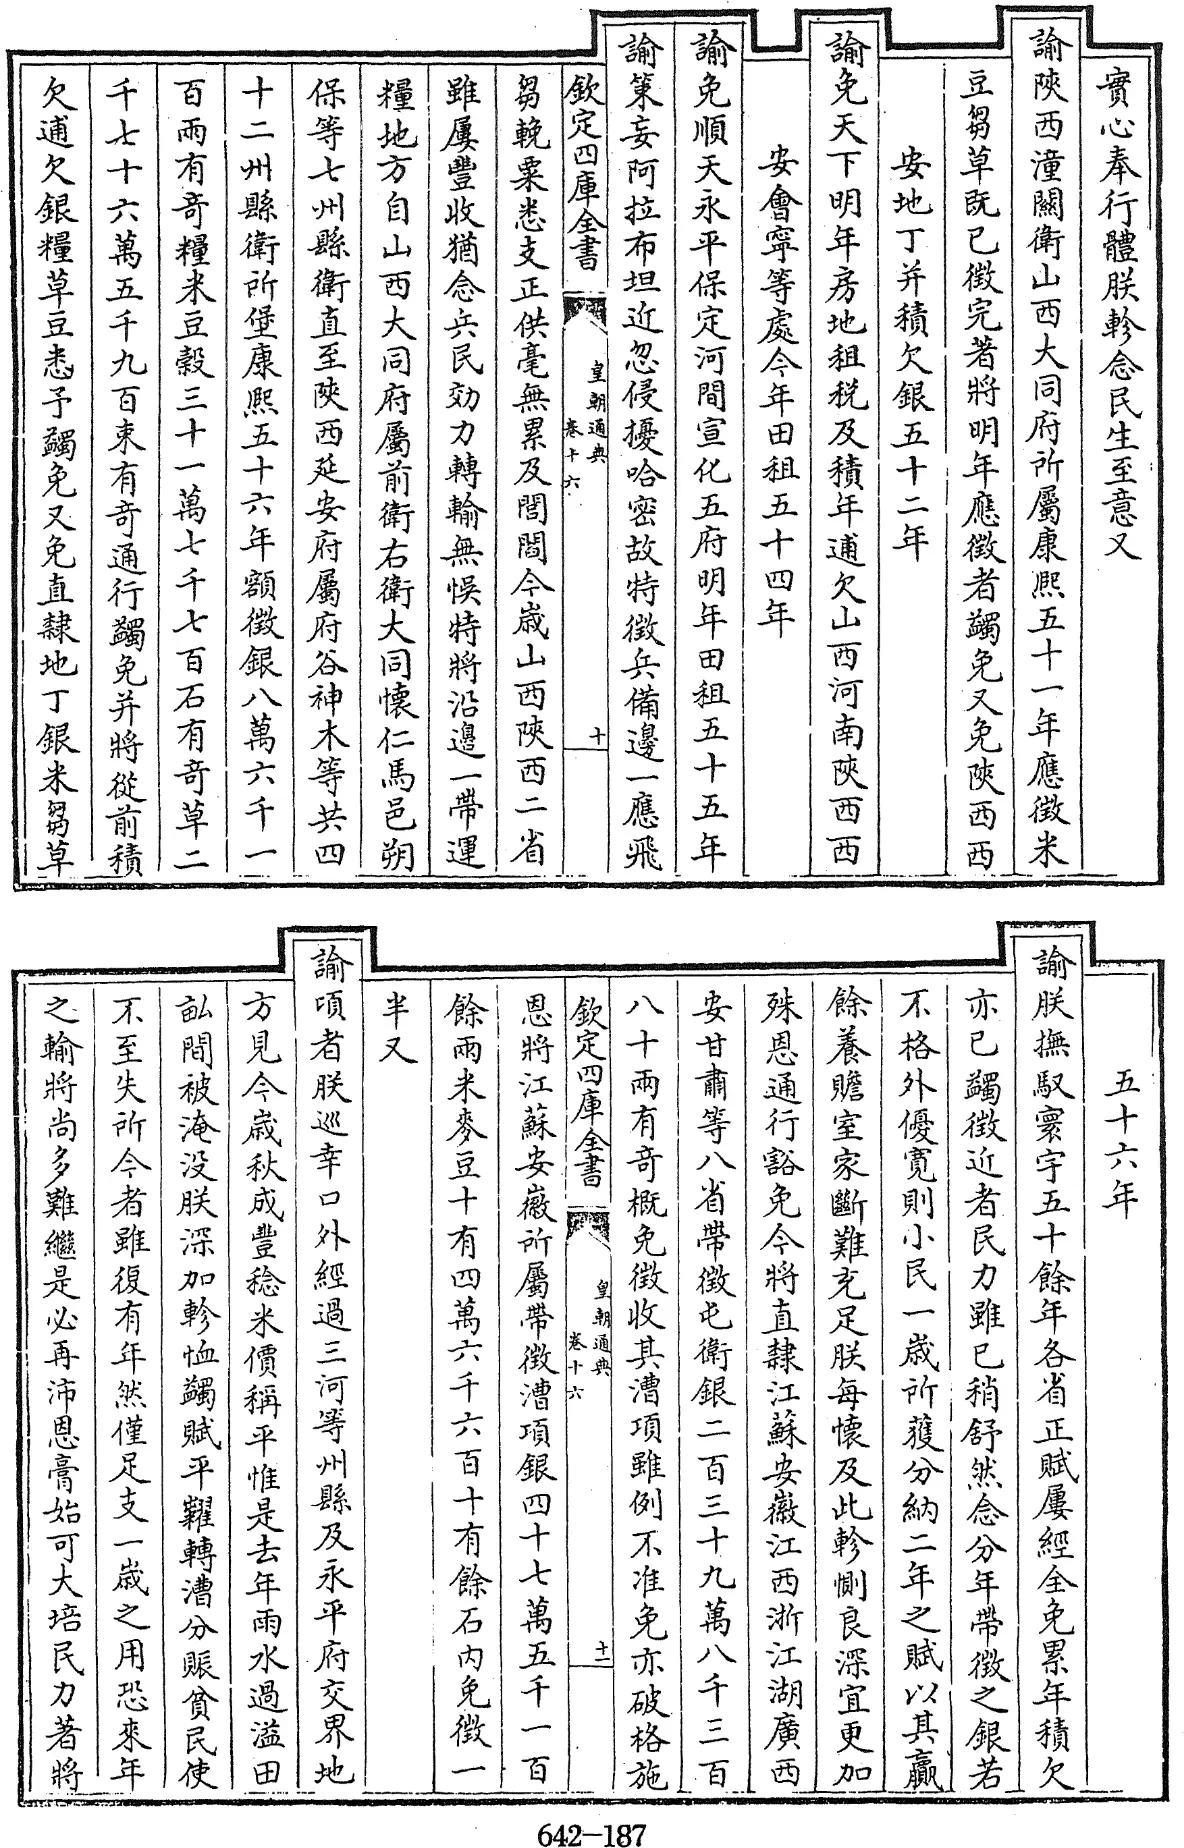 實心奉行體朕軫念民生至意又
諭陝西潼關衛山西大同府所屬康熙五十一年應徵米
豆芻草既已徵完著將明年應徵者蠲免又免陝西西
安地丁并積欠銀五十二年
諭免天下明年房地租稅及積年逋欠山西河南陝西西
安會寧等處今年田租五十四年
諭免順天永平保定河間宣化五府明年田租五十五年
諭策妄阿拉布坦近忽侵擾哈密故特徵兵備邊一應飛
欽定四庫全書
皇朝通典
卷十六
十
芻輓粟悉支正供毫無累及閭閻今歲山西陝西二省
雖屢豐收猶念兵民効力轉輸無悞特將沿邊一帶運
糧地方自山西大同府屬前衛右衛大同懷仁馬邑朔
保等七州縣衛直至陝西延安府屬府谷神木等共四
十二州縣衛所堡康熙五十六年額徵銀八萬六千一
百兩有奇糧米豆穀三十一萬七千七百石有奇草二
千七十六萬五千九百束有奇通行蠲免并將從前積
欠逋欠銀糧草豆悉予蠲免又免直隸地丁銀米芻草
五十六年
諭朕撫馭寰宇五十餘年各省正賦屢經全免累年積欠
亦已蠲徵近者民力雖已稍舒然念分年帶徵之銀若
不格外優寬則小民一歲所獲分納二年之賦以其贏
餘養贍室家斷難充足朕每懷及此軫惻良深宜更加
殊恩通行豁免今將直隸江蘇安徽江西浙江湖廣西
安甘肅等八省帶徵屯衛銀二百三十九萬八千三百
八十兩有奇概免徵收其漕項雖例不准免亦破格施
欽定四庫全書
皇朝通典
卷十六
十一
恩將江蘇安徽所屬帶徵漕項銀四十七萬五千一百
餘兩米麥豆十有四萬六千六百十有餘石內免徵一
半又
諭頃者朕巡幸口外經過三河等州縣及永平府交界地
方見今歲秋成豐稔米價稱平惟是去年雨水過溢田
畝間被淹没朕深加軫恤蠲賦平糶轉漕分賑貧民使
不至失所今者雖復有年然僅足支一歲之用恐來年
之輸將尚多難繼是必再沛恩膏始可大培民力著將
642-187